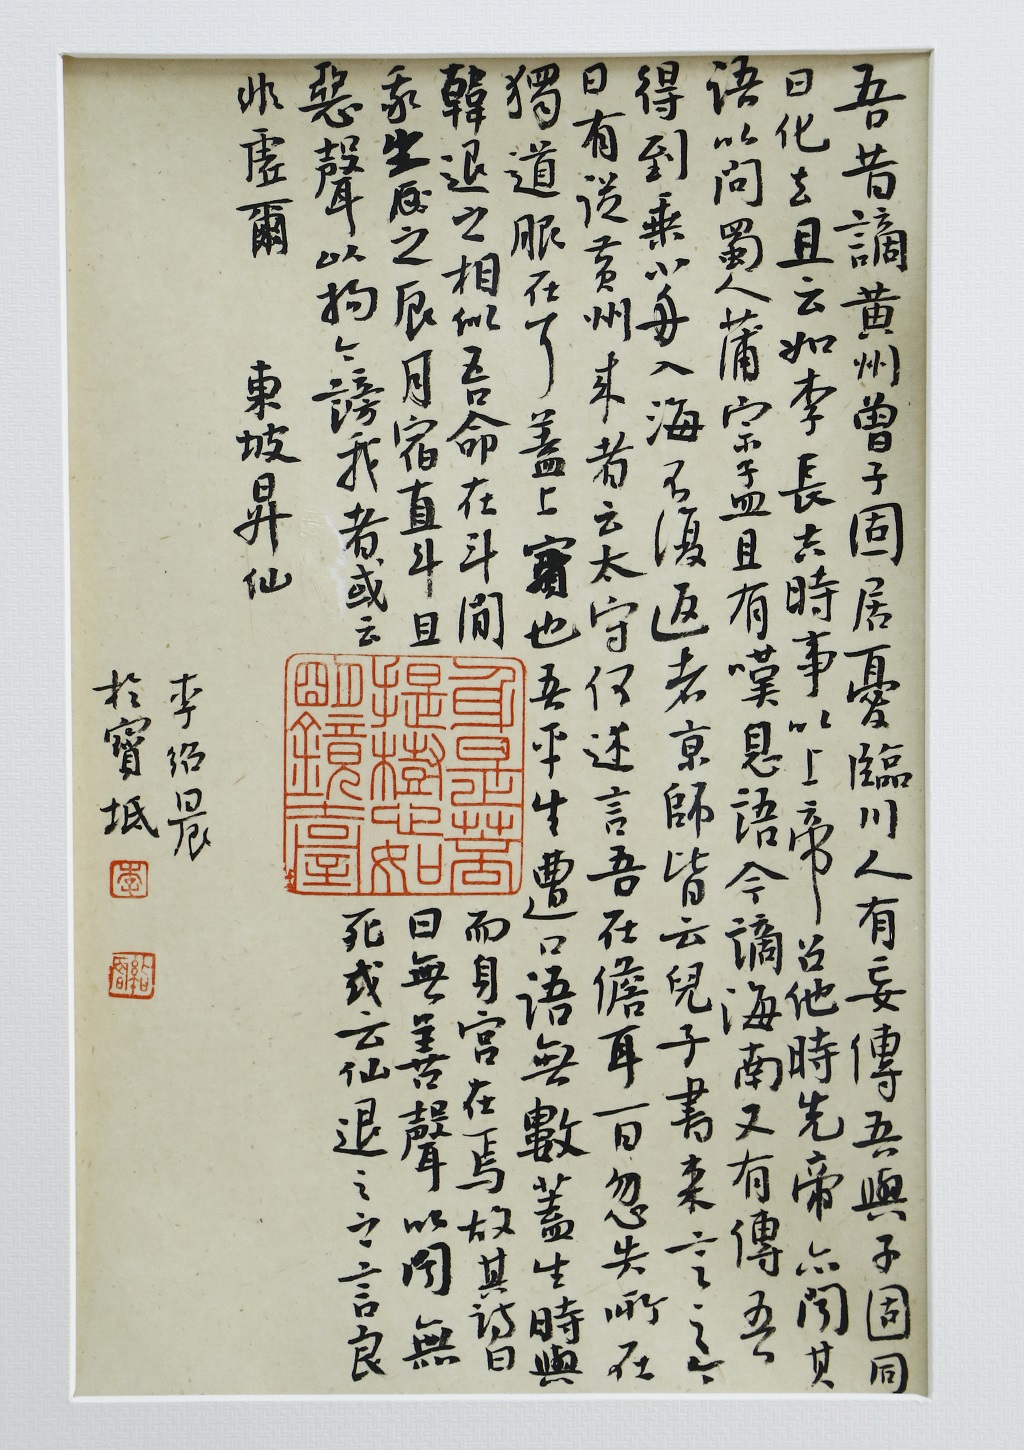 吾昔謫黃州曾子固居憂臨川人有妄傳吾與子固同
日化去且云如李長吉時事以上帝召他時先帝亦聞其
語以問蜀人蒲宗孟且有嘆息語今謫海南又有傳吾
得到乘小舟入海不復返者京師皆云兒子書來言之今
日有從黃州來者云太守何述言吾在儋耳一日忽失所在
獨道服在耳蓋上賓也吾平生遭口語無數蓋生時與
韓退之相似吾命在斗間而身宮在焉故其詩曰
我生之辰月宿直斗且曰無善聲以聞無
惡聲以揚今謗我者或云死或云仙退之之言良
非虛爾
東坡昇仙
李紹晨
於寶坻
身是菩
提樹心如
明鏡臺
李